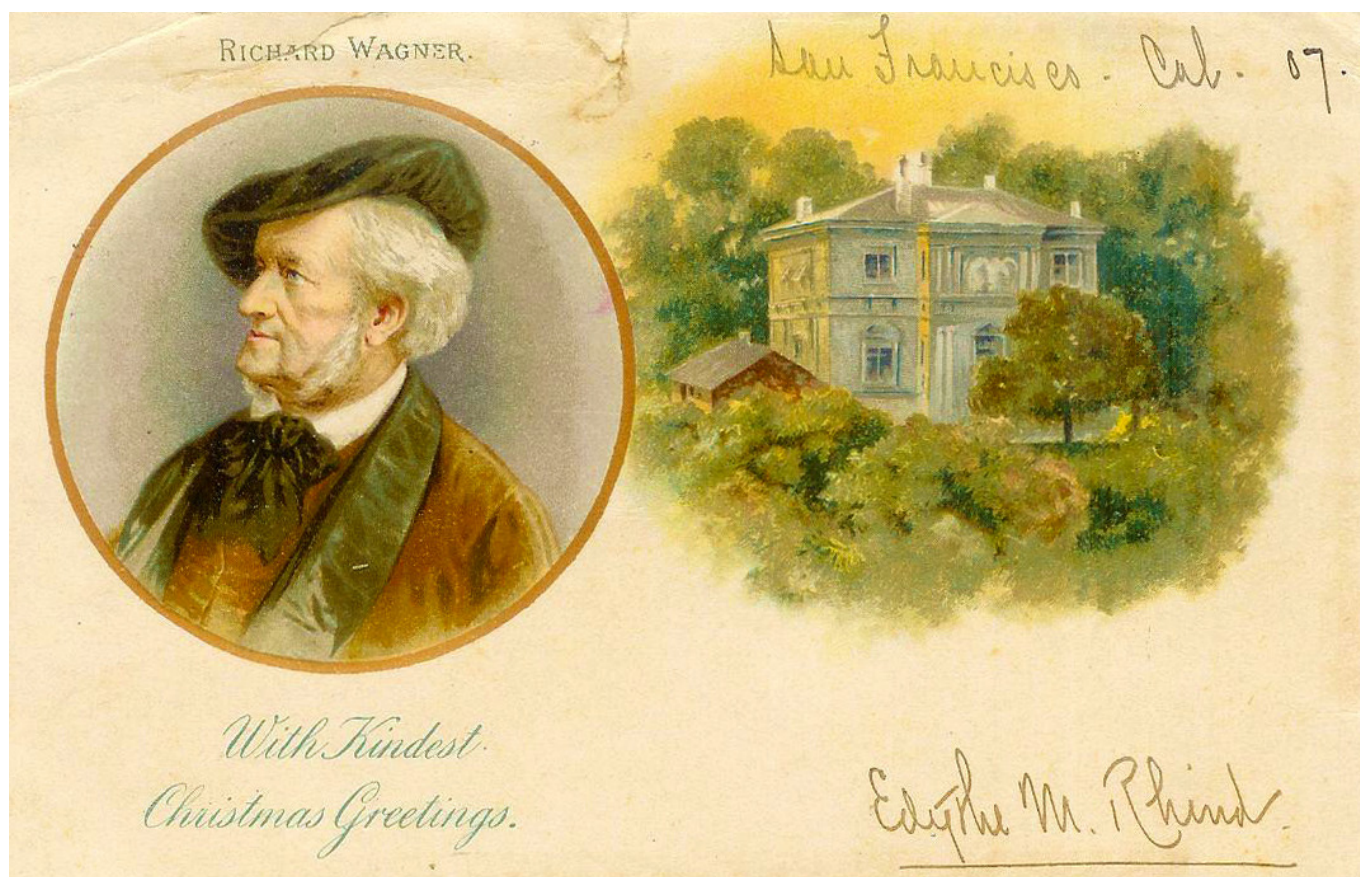 RICHARD WAGNER.
San Francisco - Cal - 07.
With Kindest
Christmas Greetings.
Edythe M. Rhind.